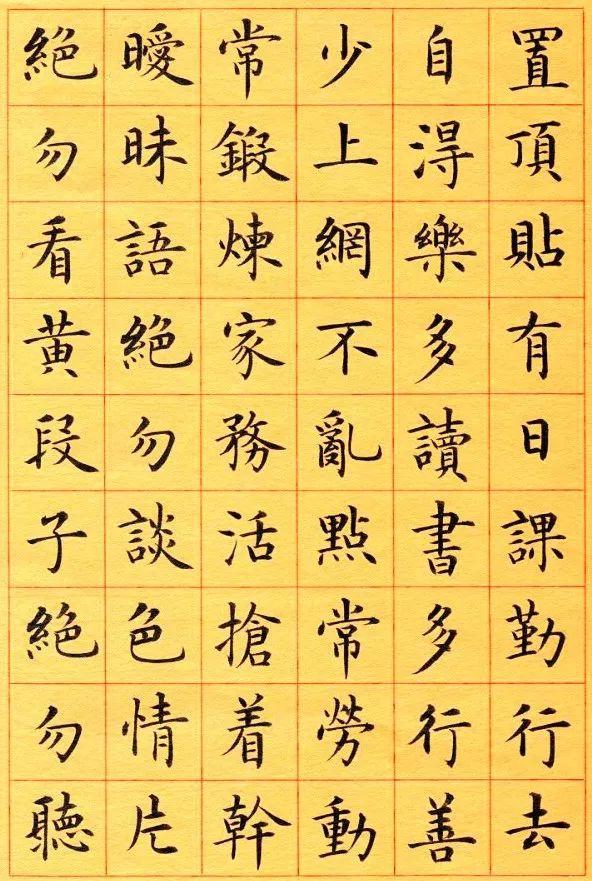 置頂貼有日課勤行去
自淂樂多讀書多行善
少上網不亂點常勞動
常鍛煉家務活搶着幹
曖昧語絶勿談色情片
絶勿看黄段子絶勿聽